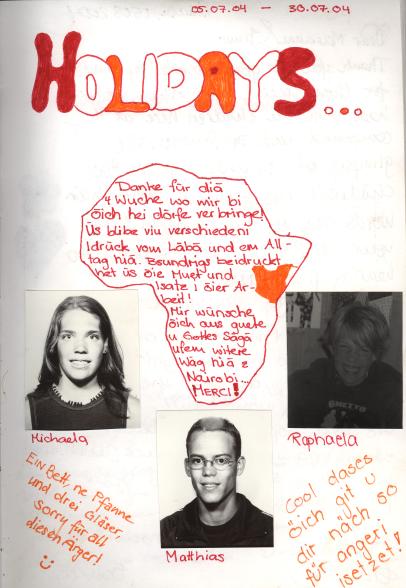 05.07.04 - 30.07.04
HOLIDAYS...
Danke für diä
4 Wuche wo mir bi
öich hei dörfe verbringe!
Üs blibe viu verschiedeni
Idrück vom Läbä und em All-
tag hiä. Bsundrigs beidruckt
het üs öie Muet und
Isatz i öier Ar-
beit!
Mir wünsche
öich aus guete
u Gottes Sägä
ufem witere
Wäg hiä z
Nairobi...
MERCI!
Michaela
Raphaela
GHETTO
Matthias
Ein Bett, ne Pfanne
und drei Gläser,
sorry für all
diesen Ärger!
Cool dases
öich git u
dir näch so
für angeri
isetzet!